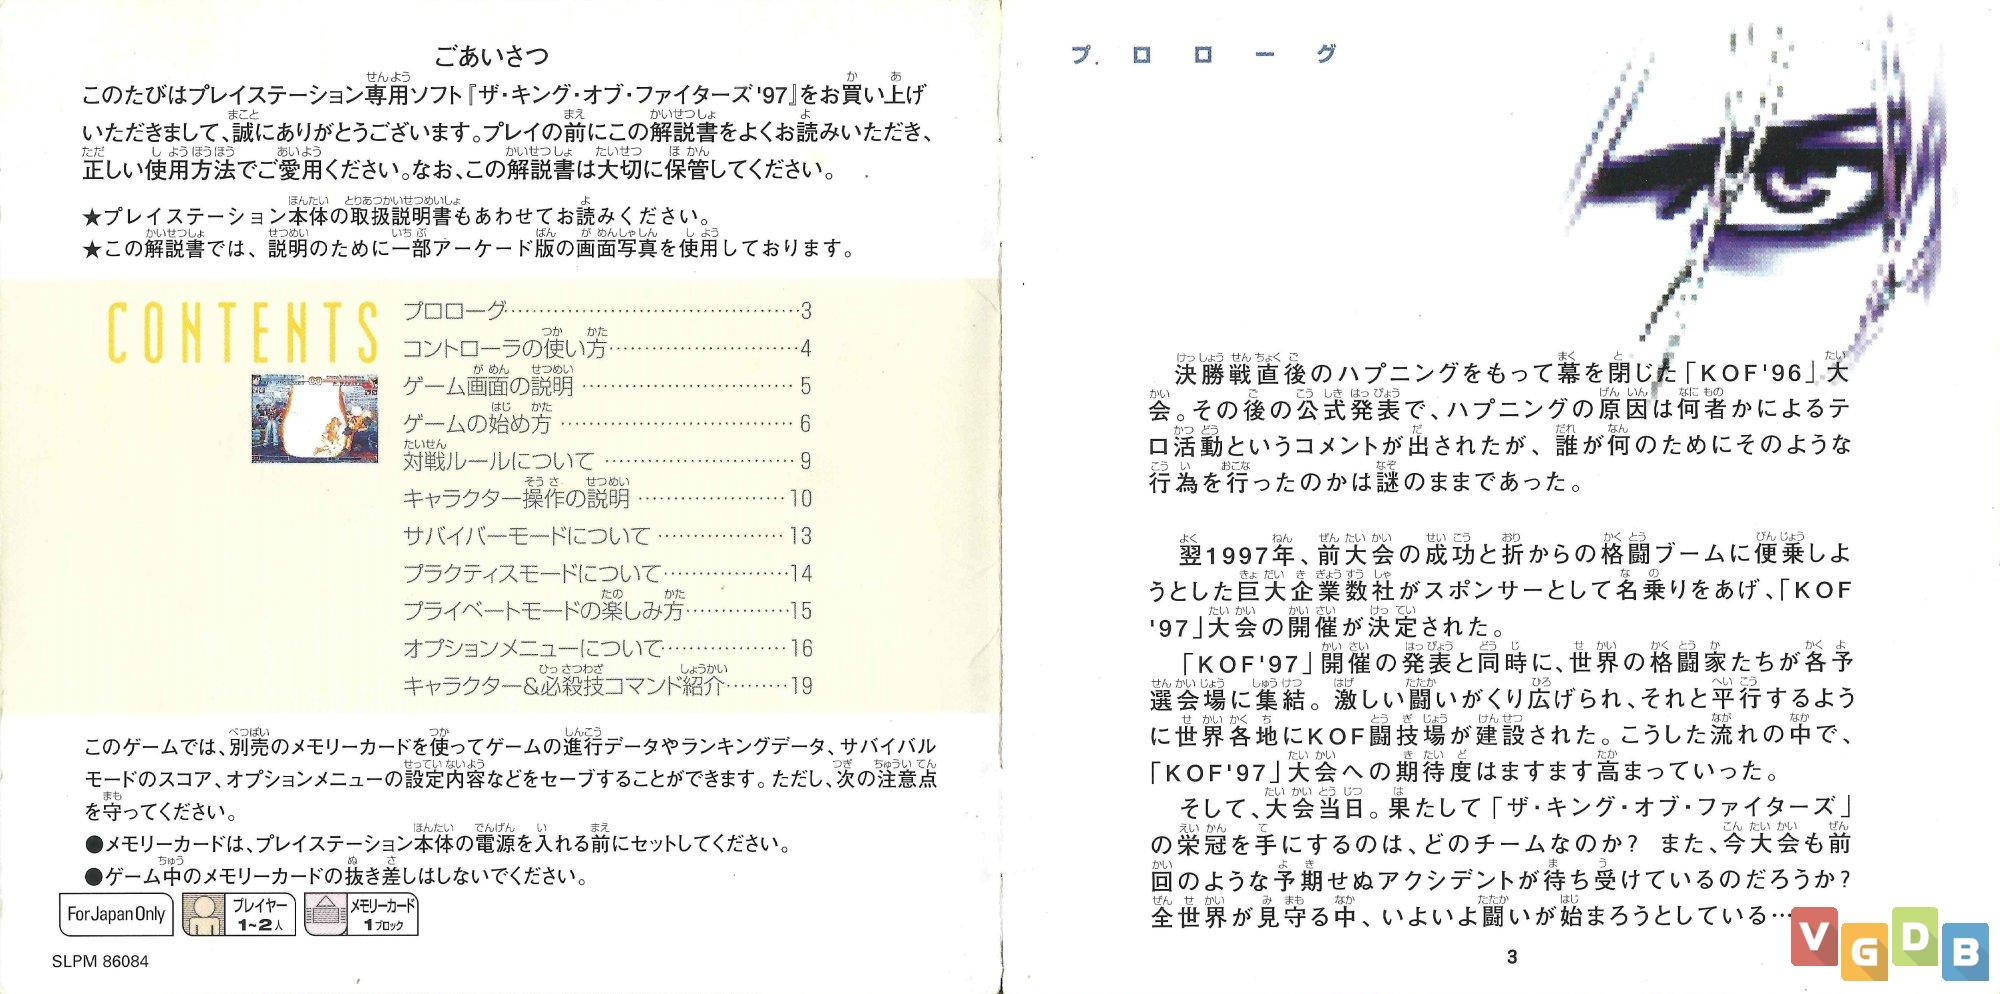 ごあいさつ
このたびはプレイステーション専用ソフト『ザ・キング・オブ・ファイターズ'97』をお買い上げ
いただきまして、誠にありがとうございます。プレイの前にこの解説書をよくお読みいただき、
正しい使用方法でご愛用ください。なお、この解説書は大切に保管してください。
★プレイステーション本体の取扱説明書もあわせてお読みください。
★この解説書では、説明のために一部アーケード版の画面写真を使用しております。
CONTENTS
プロローグ……3
コントローラの使い方……4
ゲーム画面の説明……5
ゲームの始め方……6
対戦ルールについて……9
キャラクター操作の説明……10
サバイバーモードについて……13
プラクティスモードについて……14
プライベートモードの楽しみ方……15
オプションメニューについて……16
キャラクター&必殺技コマンド紹介……19
このゲームでは、別売のメモリーカードを使ってゲームの進行データやランキングデータ、サバイバル
モードのスコア、オプションメニューの設定内容などをセーブすることができます。ただし、次の注意点
を守ってください。
●メモリーカードは、プレイステーション本体の電源を入れる前にセットしてください。
●ゲーム中のメモリーカードの抜き差しはしないでください。
For Japan Only
プレイヤー
1~2人
メモリーカード
1ブロック
SLPM 86084
プロローグ
決勝戦直後のハプニングをもって幕を閉じた「KOF'96」大
会。その後の公式発表で、ハプニングの原因は何者かによるテ
ロ活動というコメントが出されたが、誰が何のためにそのような
行為を行ったのかは謎のままであった。
翌1997年、前大会の成功と折からの格闘ブームに便乗しよ
うとした巨大企業数社がスポンサーとして名乗りをあげ、「KOF
'97」大会の開催が決定された。
「KOF'97」開催の発表と同時に、世界の格闘家たちが各予
選会場に集結。激しい闘いがくり広げられ、それと平行するよう
に世界各地にKOF闘技場が建設された。こうした流れの中で、
「KOF'97」大会への期待度はますます高まっていった。
そして、大会当日。果たして「ザ・キング・オブ・ファイターズ」
の栄冠を手にするのは、どのチームなのか? また、今大会も前
回のような予期せぬアクシデントが待ち受けているのだろうか?
全世界が見守る中、いよいよ闘いが始まろうとしている…
3
VGDB